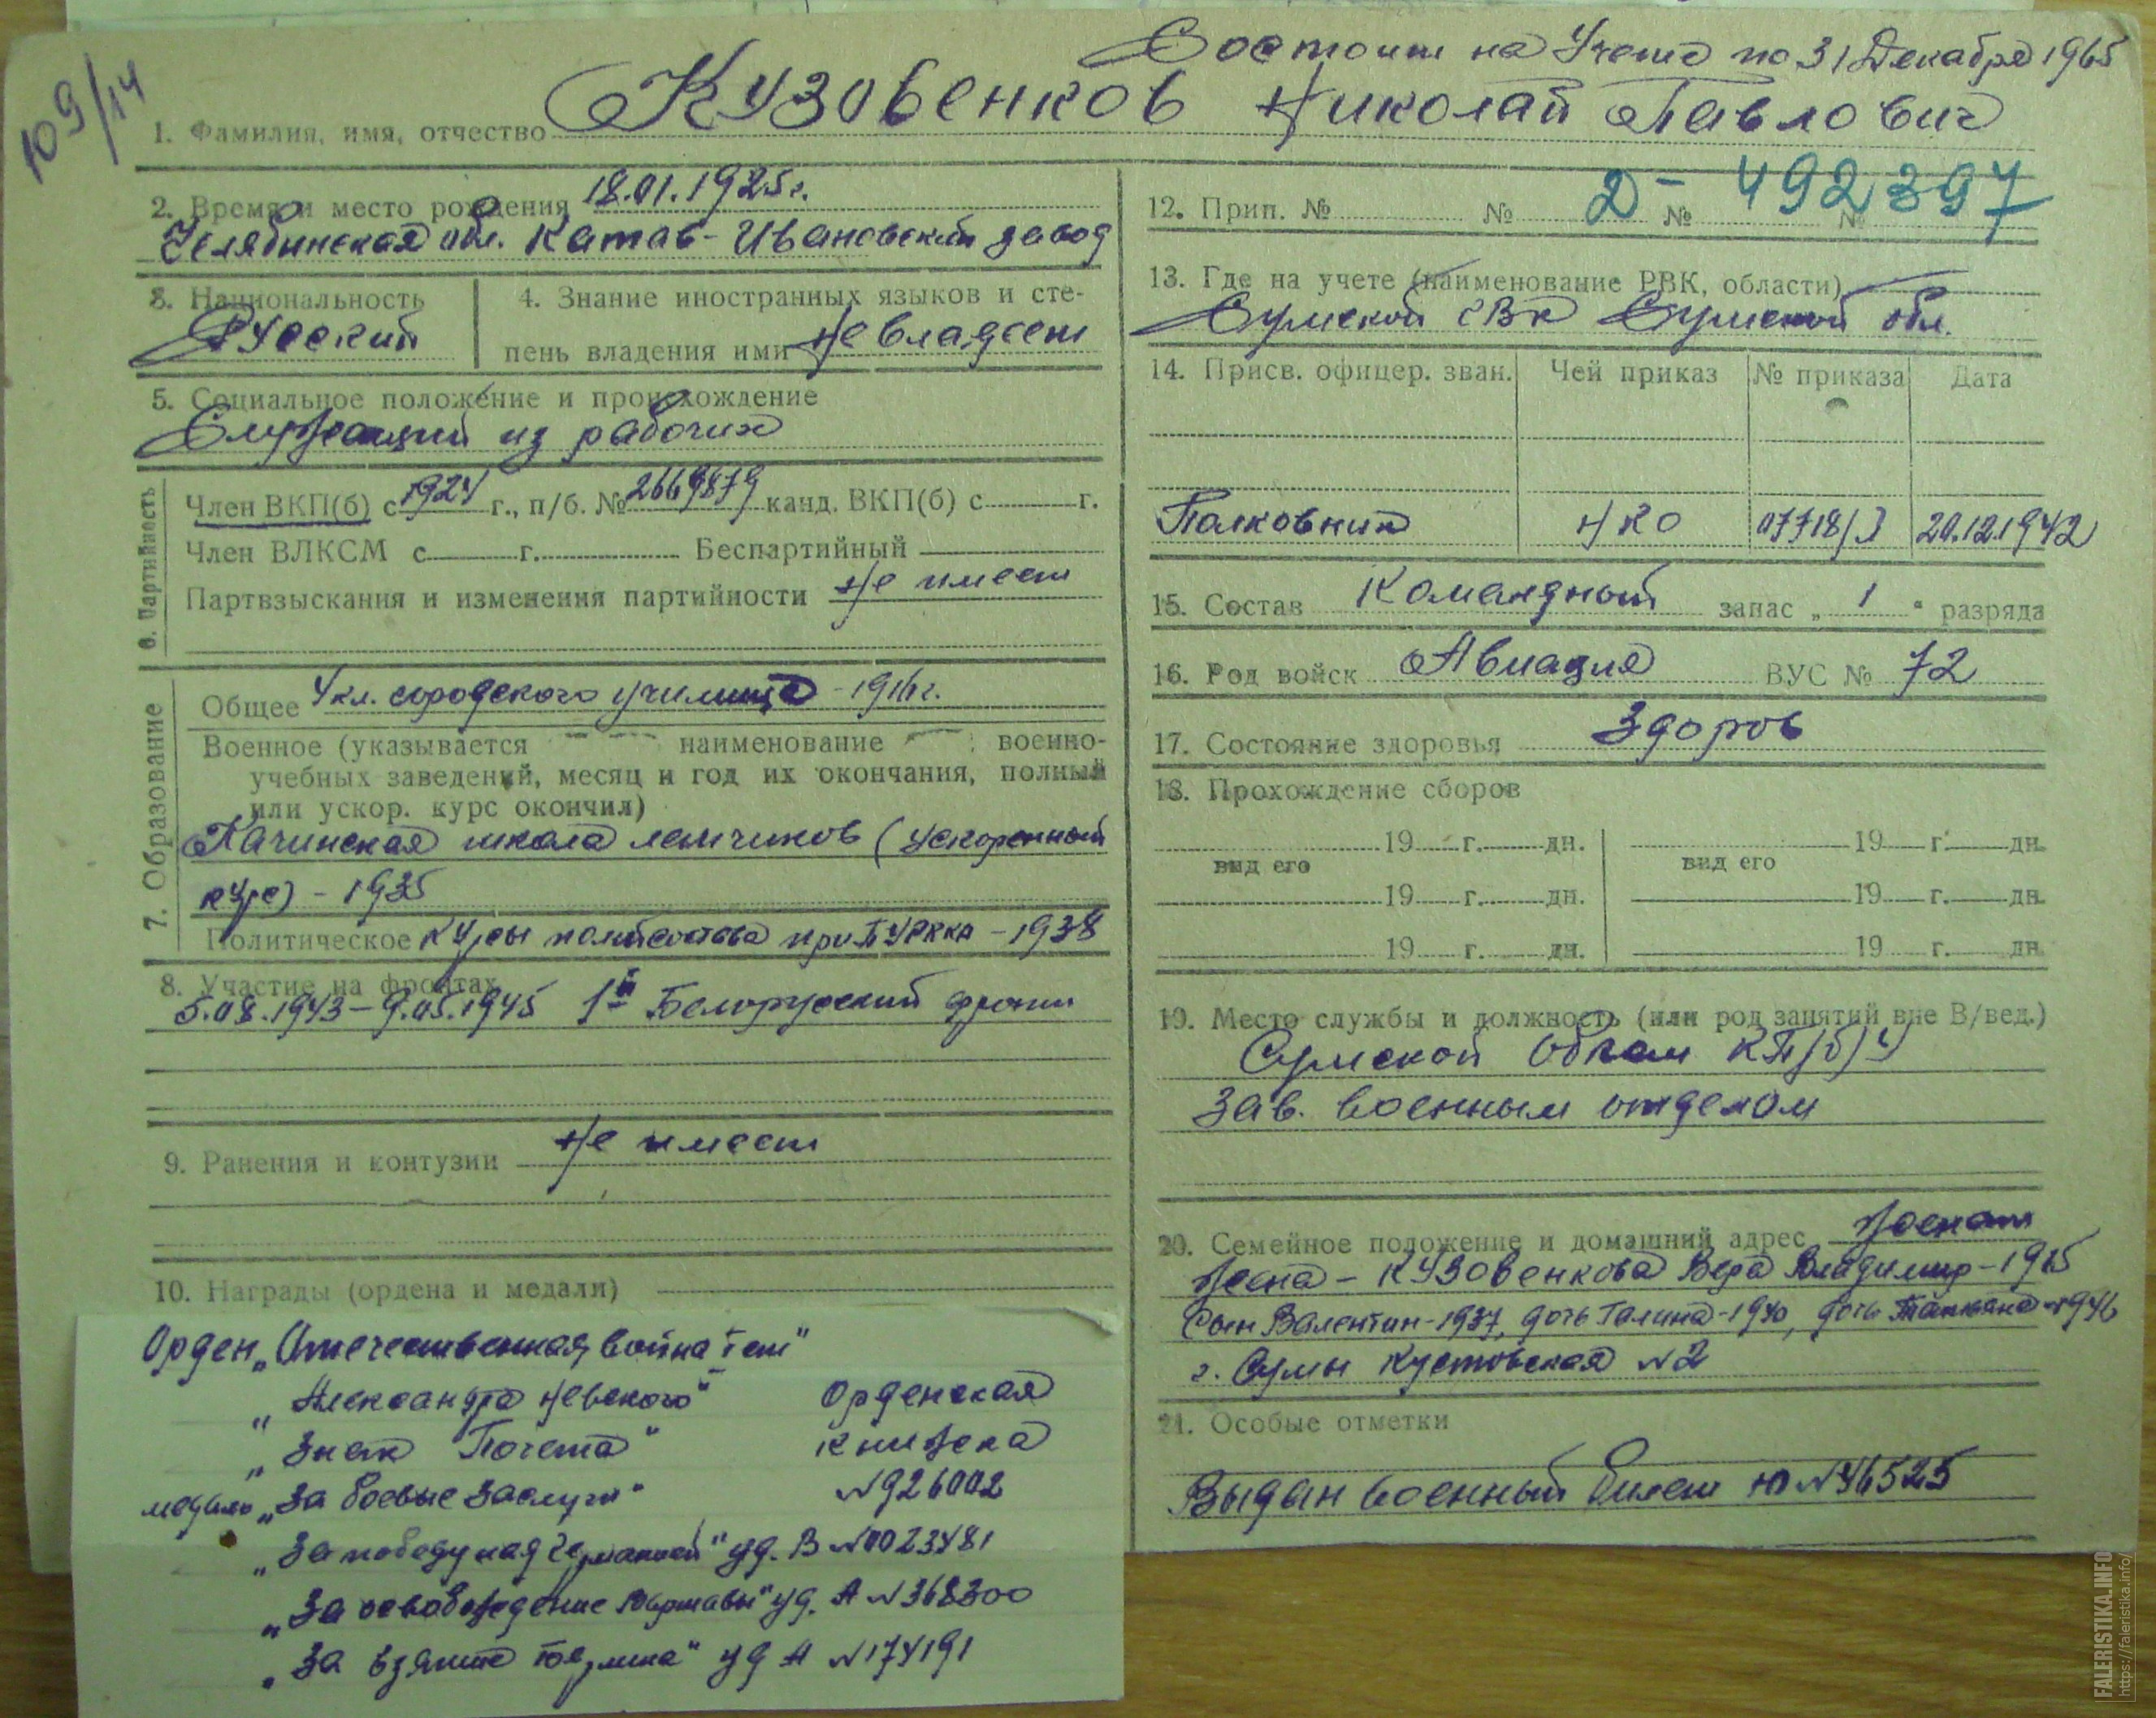 109/14
Состоит на Учете по 31 Декабря 1965
1. Фамилия, имя, отчество Кузовенков Николай Павлович
2. Время и место рождения 18.01.1925г.
Челябинская обл. Катав-Ивановский завод
3. Национальность
Русский
4. Знание иностранных языков и сте-
пень владения ими Не владеет
5. Социальное положение и происхождение
Служащий из рабочих
6. Партийность
Член ВКП(б) с 1924 г., п/б. № 2669879 канд. ВКП(б) с г.
Член ВЛКСМ с г. Беспартийный
Партвзыскания и изменения партийности Не имеет
7. Образование
Общее 4 кл. городского училища - 1916г.
Военное (указывается наименование военно-
учебных заведений, месяц и год их окончания, полный
или ускор. курс окончил)
Качинская школа летчиков (ускоренный
курс) - 1935
Политическое Курсы политсостава при ПУРККА - 1938
8. Участие на фронтах
5.08.1943 - 9.05.1945 1й Белорусский фронт
9. Ранения и контузии Не имеет
10. Награды (ордена и медали)
Орден „Отечественная война I ст"
„Александра Невского" Орденская
„Знак Почета" книжка
медаль „За боевые заслуги" №926002
„За победу над Германией" уд. В №0023481
„За освобождение Варшавы" уд. А №368300
„За взятие Берлина" уд А №174191
12. Прип. № № Д- № 492397 №
13. Где на учете (наименование РВК, области)
Сумской ГВК Сумской обл.
14. Присв. офицер. зван. Чей приказ № приказа Дата
Полковник НКО 07718/ 20.12.1942
15. Состав Командный запас „ 1 " разряда
16. Род войск Авиация ВУС № 72
17. Состояние здоровья Здоров
18. Прохождение сборов
19 г. дн. 19 г. дн.
вид его вид его
19 г. дн. 19 г. дн.
19 г. дн. 19 г. дн.
19. Место службы и должность (или род занятий вне В/вед.)
Сумской Обком КП(б)У
Зав. военным отделом
20. Семейное положение и домашний адрес Женат
Жена - Кузовенкова Вера Владимир - 1915
Сын Валентин - 1937, дочь Галина - 1940, дочь Татьяна - 1946
г. Сумы Кустовская №2
21. Особые отметки
Выдан военный билет Ю №46525
FALERISTIKA.INFO
https://faleristika.info/